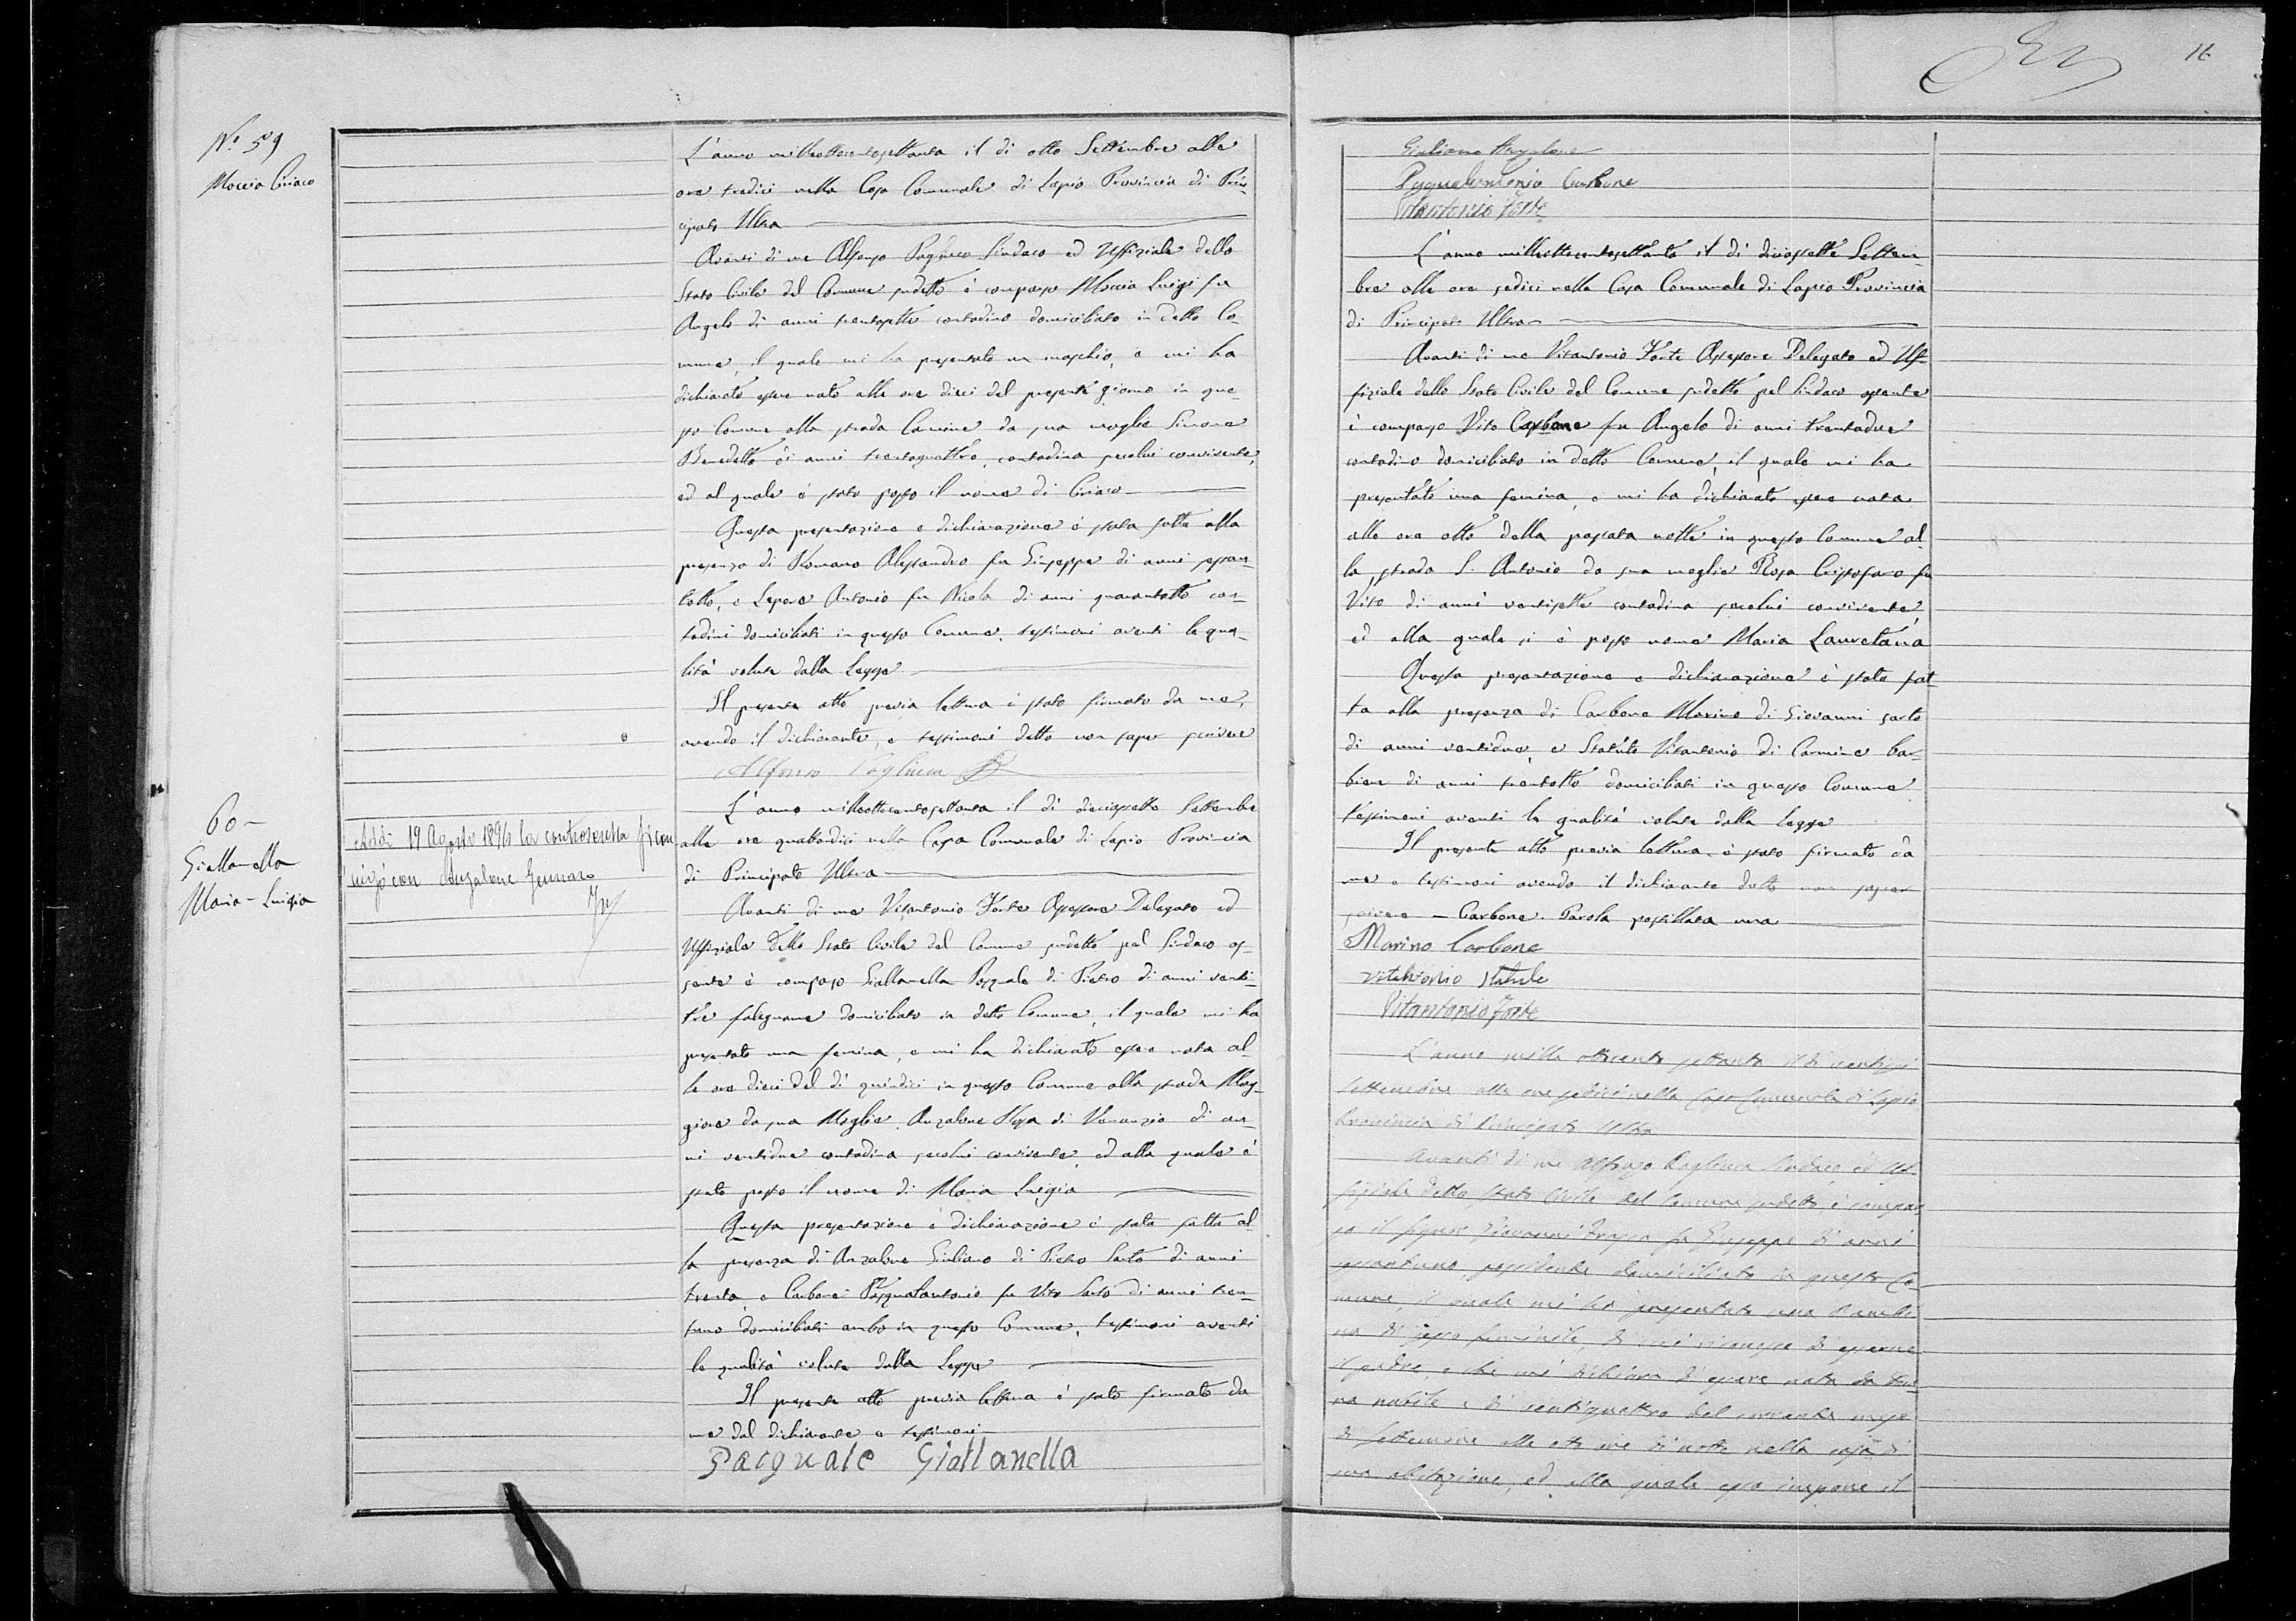 N.° 59
Moccia Ciriaco
L'anno milleottocentosettanta il dì otto Settembre alle
ore tredici nella Casa Comunale di Lapio Provincia di Prin-
cipato Ultra
Avanti di me Alfonso Pagliuca Sindaco ed Uffiziale dello
Stato Civile del Comune sudetto è comparso Moccia Luigi fu
Angelo di anni trentasette contadino domiciliato in detto Co-
mune, il quale mi ha presentato un maschio, e mi ha
dichiarato essere nato alle ore dieci del presente giorno in que-
sto Comune alla strada Carmine da sua moglie Simone
Benedetta di anni trentaquattro, contadina secolui convivente,
ed al quale è stato posto il nome di Ciriaco
Questa presentazione e dichiarazione è stata fatta alla
presenza di Romano Alessandro fu Giuseppe di anni sessan-
totto, e Lepore Antonio fu Nicola di anni quarantotto con-
tadini domiciliati in questo Comune, testimoni aventi le qua-
lità volute dalla Legge
Il presente atto previa lettura è stato firmato da me,
avendo il dichiarante, e testimoni detto non saper scrivere
Alfonso Pagliuca
60-
Giallanella
Maria-Luigia
Addì 19 Agosto 1896 la controscritta si con
iugò con Anzalone Gennaro
L'anno milleottocentosettanta il dì diciassette Settembre
alle ore quattordici nella Casa Comunale di Lapio Provincia
di Principato Ultra
Avanti di me Vitantonio Forte Assessore Delegato ed
Uffiziale dello Stato Civile del Comune sudetto pel Sindaco as-
sente è comparso Giallanella Pasquale di Pietro di anni venti-
tre falegname domiciliato in detto Comune, il quale mi ha
presentato una femina, e mi ha dichiarato essere nata al-
le ore dieci del dì quindici in questo Comune alla strada Mag-
giore da sua Moglie Anzalone Rosa di Venanzio di an-
ni ventidue contadina secolui convivente, ed alla quale è
stato posto il nome di Maria Luigia
Questa presentazione e dichiarazione è stata fatta al-
la presenza di Anzalone Giuliano di Pietro Sarto di anni
trenta, e Carbone Pasqualantonio fu Vito Sarto di anni tren-
tuno domiciliati ambo in questo Comune, testimoni aventi
le qualità volute dalla Legge
Il presente atto previa lettura è stato firmato da
me dal dichiarante e testimoni
Pasquale Giallanella
16
Giuliano Anzalone
Pasqualantonio Carbone
Vitantonio Forte
L'anno milleottocentosettanta il dì diciassette Settem-
bre alle ore sedici nella Casa Comunale di Lapio Provincia
di Principato Ultra
Avanti di me Vitantonio Forte Assessore Delegato ed Uf-
fiziale dello Stato Civile del Comune sudetto pel Sindaco assente
è comparso Vito Carbone fu Angelo di anni trentadue
contadino domiciliato in detto Comune, il quale mi ha
presentato una femina, e mi ha dichiarato essere nata
alle ore otto della passata notte in questo Comune al-
la strada S. Antonio da sua moglie Rosa Cristofaro fu
Vito di anni ventisette contadina secolui convivente
ed alla quale si è posto nome Maria Lauretana
Questa presentazione e dichiarazione è stata fat-
ta alla presenza di Carbone Marino di Giovanni sarto
di anni ventidue, e Statuto Vitantonio di Carmine bar-
biere di anni trentotto domiciliati in questo Comune
testimoni aventi le qualità volute dalla Legge
Il presente atto previa lettura è stato firmato da
me e testimoni avendo il dichiarante detto non saper
scrivere — Carbone. Parola postillata una
Marino Carbone
Vitantonio
Vitantonio Forte
L'anno mille ottocento settanta il dì
Settembre alle ore sedici nella Casa Comunale di Lapio
Provincia di Principato Ultra
Avanti di me Alfonso Pagliuca Sindaco ed Uf-
fiziale dello Stato Civile del Comune sudetto è compar-
so il Signor Giovanni fu Giuseppe di anni
quarantuno, possidente domiciliato in questo Co-
mune, il quale mi ha presentato una bambi-
na di sesso feminile, di cui riconosce di esserne
il padre, e che mi dichiara di essere nata da don-
na nubile il dì ventiquattro del corrente mese
di Settembre alle otto ore di notte nella casa di
sua abitazione, ed alla quale esso impone il